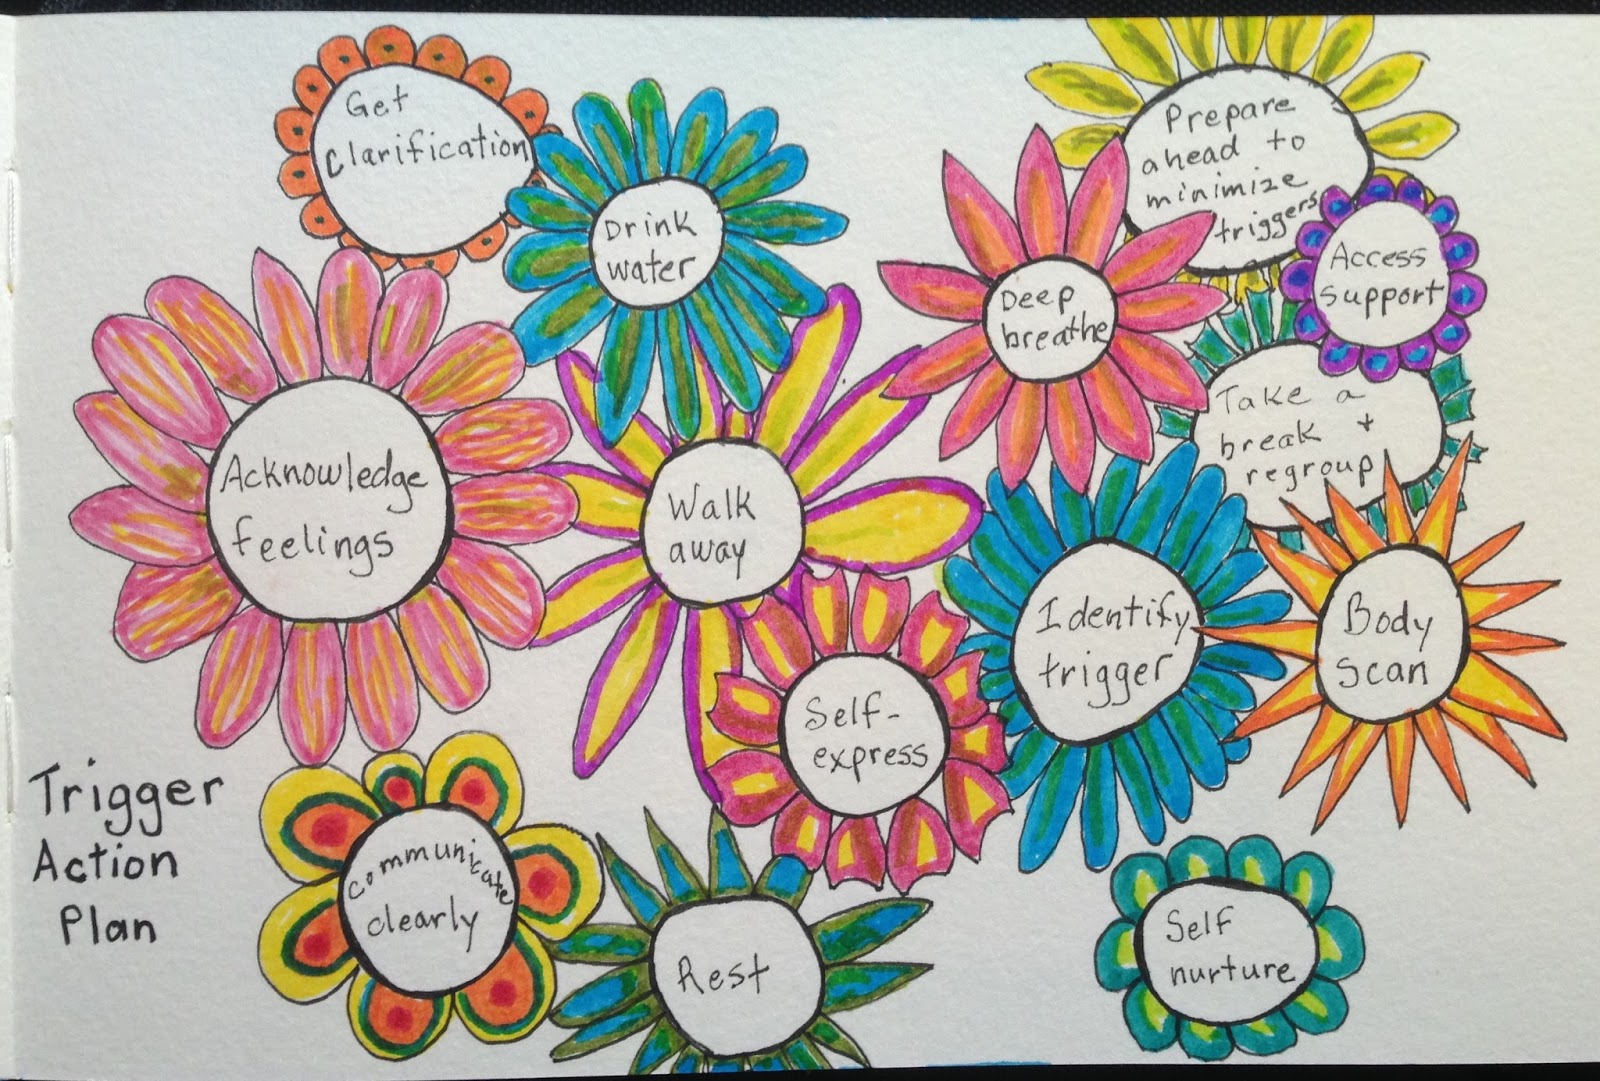 Get
clarification
Drink
water
Prepare
ahead to
minimize
triggers
Access
support
Deep
breathe
Take a
break +
regroup
Acknowledge
feelings
Walk
away
Identify
trigger
Body
scan
Self-
express
Trigger
Action
Plan
communicate
clearly
Rest
Self
nurture